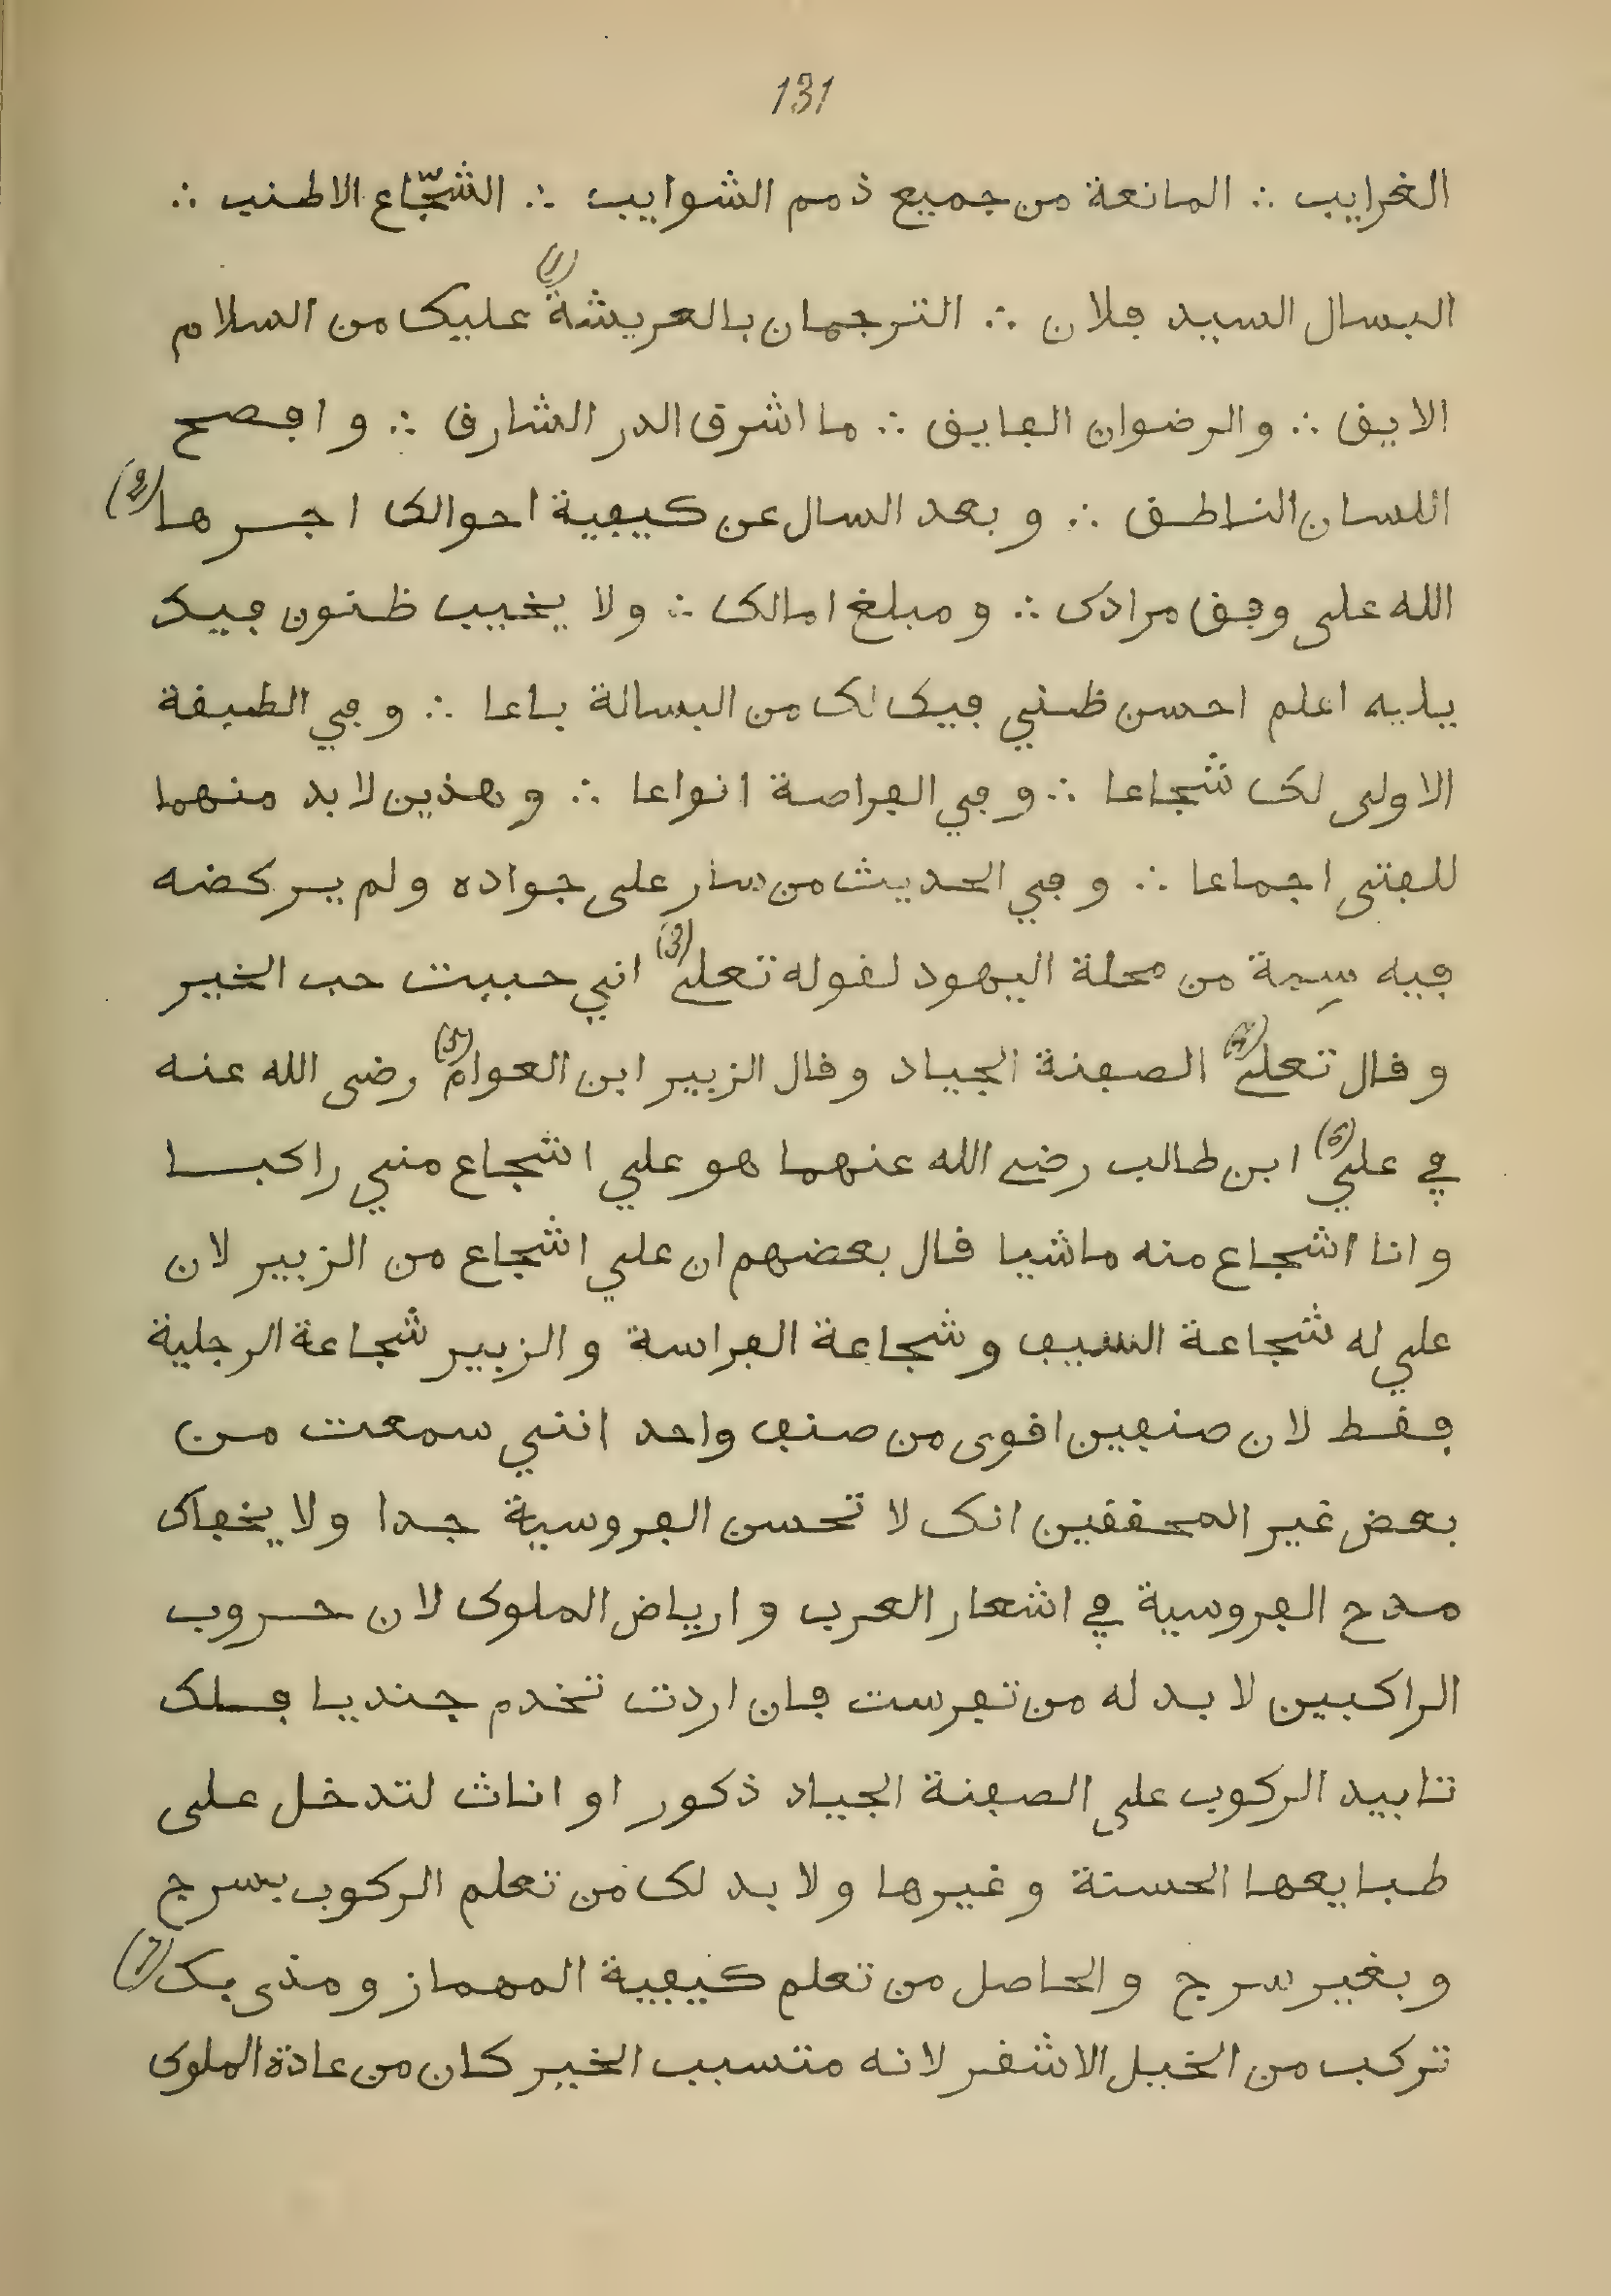 131
الغرايب ∴ المانعة من جميع ذمم الشوايب ∴ الشجّاع الاطنب ∴
البسال السيد فلان ∴ الترجمان بالعريشة (1) عليك من السلام
الايق ∴ والرضوان الفايق ∴ ما اشرق الدر الشارق ∴ و افصح
اللسان الناطق ∴ و بعد السال عن كيفية احوالك اجرها (2)
الله على وفق مرادك ∴ و مبلغ امالك ∴ ولا يخيب ظنون فيك
يليه اعلم احسن ظني فيك لك من البسالة باعا ∴ و في الطبقة
الاولى لك شجاعا ∴ و في الفراصة انواعا ∴ و هذين لا بد منهما
للفتى اجماعا ∴ و في الحديث من سار على جواده ولم يركضه
فيه سمة من محلة اليهود لقوله تعلى (3) اني حببت حب الخير
و قال تعلى (4) الصفنة الجياد و قال الزبير ابن العوام (5) رضى الله عنه
في علي (6) ابن طالب رضي الله عنهما هو علي اشجاع مني راكبا
و انا اشجاع منه ماشيا قال بعضهم ان علي اشجاع من الزبير لان
علي له شجاعة السيف و شجاعة الفراسة و الزبير شجاعة الرجلية
فقط لان صنفين اقوى من صنف واحد انني سمعت من
بعض غير المحققين انك لا تحسن الفروسية جدا ولا يخفاك
مدح الفروسية في اشعار العرب و ارياض الملوك لان حروب
الراكبين لا بد له من تفرست فان اردت تخدم جنديا فلك
تابيد الركوب على الصفنة الجياد ذكور او اناث لتدخل على
طبايعها الحسنة و غيرها ولا بد لك من تعلم الركوب بسرج
و بغير سرج و الحاصل من تعلم كيفية المهماز و مذى بك (7)
تركب من الخيل الاشقر لانه متسبب الخير كان من عادة الملوك